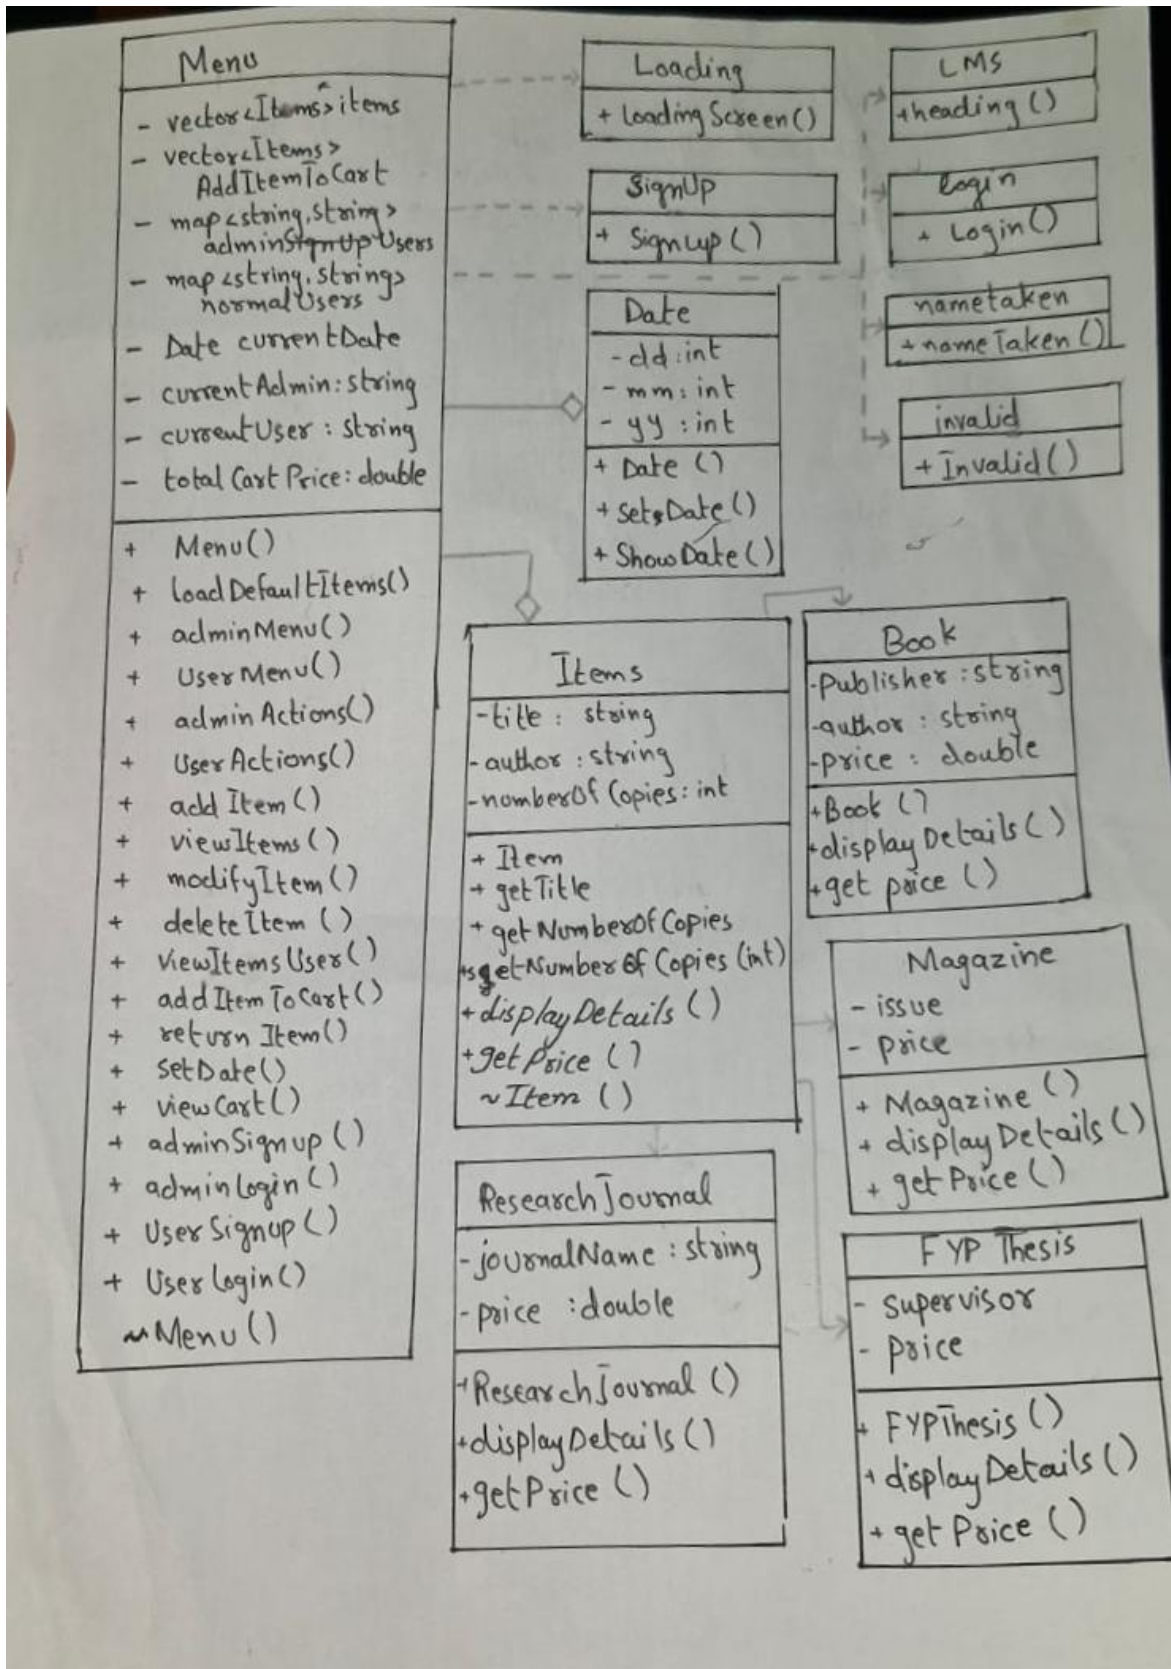 Menu
- vector<Items> items
- vector<Items>
AddItemToCart
- map<string,string>
adminSignUpUsers
- map<string,strings>
normalUsers
- Date currentDate
- currentAdmin: string
- currentUser : string
- total Cart Price: double
+ Menu()
+ loadDefaultItems()
+ adminMenu()
+ UserMenu()
+ adminActions()
+ UserActions()
+ add Item()
+ viewItems()
+ modifyItem()
+ deleteItem ()
+ viewItemsUser()
+ addItemToCart()
+ return Item()
+ setDate()
+ viewCart()
+ adminSignup ()
+ adminLogin ()
+ UserSignup ()
+ UserLogin()
~Menu()
Loading
+ LoadingScreen()
SignUp
+ Signup()
LMS
+heading()
login
+ Login()
nametaken
+nameTaken()
invalid
+Invalid()
Date
- dd:int
- mm: int
- yy : int
+ Date ()
+ setDate()
+ ShowDate()
Items
-title : string
- author : string
-nomberOf Copies: int
+ Item
+ getTitle
+ getNumberOfCopies
+setNumberOf Copies (int)
+displayDetails ()
+getPrice ()
~Item ()
Book
-Publisher : string
-author : string
-price : double
+Book ()
+displayDetails()
+get price ()
Magazine
- issue
- price
+ Magazine ()
+ displayDetails()
+ getPrice ()
ResearchJournal
-journalName : string
-price : double
+ResearchJournal ()
+displayDetails()
+getPrice ()
FYP Thesis
- supervisor
- price
+ FYPThesis ()
+ displayDetails()
+ get Price ()